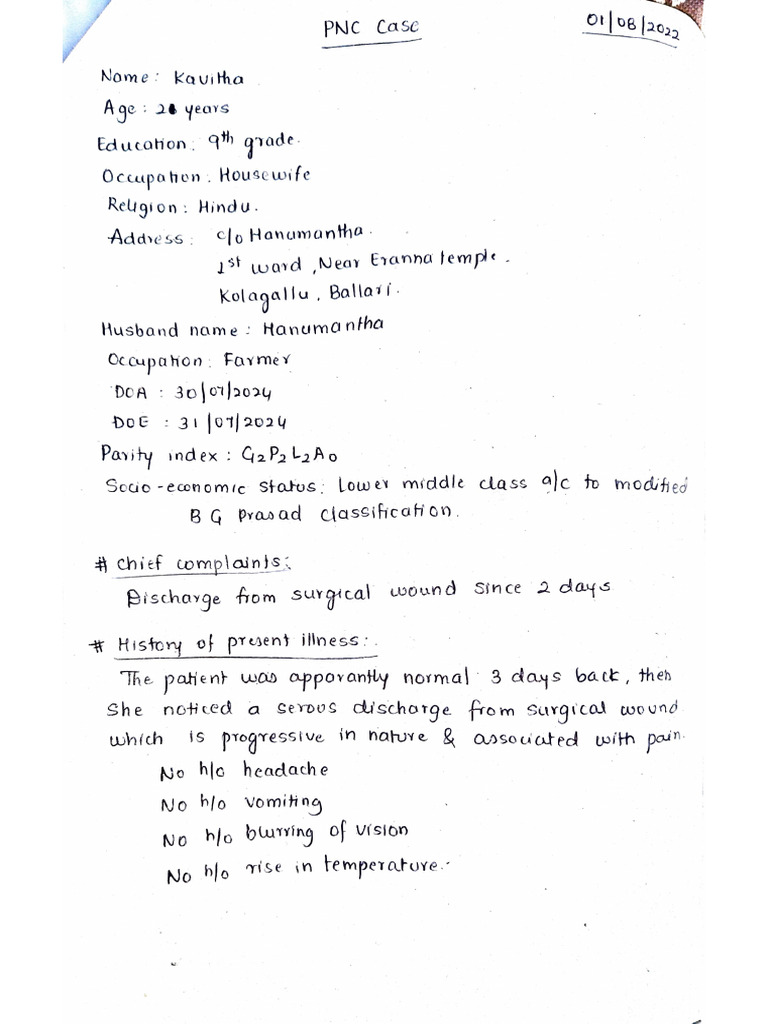 PNC Case
01/08/2022
Name: Kavitha
Age: years
Education: 9th grade.
Occupation: Housewife
Religion: Hindu.
Address: c/o Hanumantha.
1st ward, Near Eranna temple.
Kolagallu, Ballari.
Husband name: Hanumantha
Occupation: Farmer
DOA : 30/07/2024
DOE : 31/07/2024
Parity index: G2P2L2A0
Socio-economic status: Lower middle class a/c to modified
B G Prasad Classification.
# Chief complaints:
Discharge from surgical wound since 2 days
# History of present illness:
The patient was apparantly normal 3 days back, then
She noticed a serous discharge from surgical wound
which is progressive in nature & associated with pain.
No h/o headache
No h/o vomiting
No h/o blurring of vision
No h/o rise in temperature.